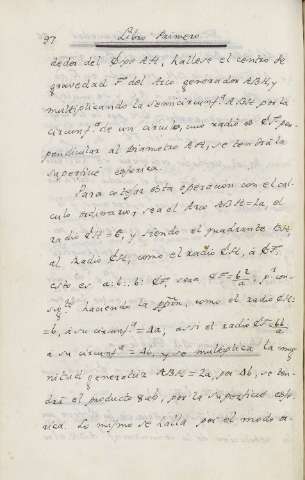 97 Libro Primero
dedor del Exe AH, hallese el centro de
gravedad F del Arco generador ABH, y
multiplicando la semicircunfª ABH por la
circunfª de un circulo, cuio radio es CF per-
pendicular al Diametro AH, se tendrá la
superficie esferica.
Para cotejar esta operacion con el cal-
culo ordinario, sea el Arco ABH=2a, el
radio CH=b, y siendo el quadrante BH,
al Radio CH, como el radio CH, á CF,
esto es a:b::b:CF, será CF=b²/a; pr con-
sigte haciendo la como el radio CH
=b, á su circunfª=4a, assi el radio CF=bb/a
á su circunfª=4b, y se multiplica la mag-
nitud generatriz ABH=2a, por 4b, se ten-
drá el producto 8ab, por la superficie esfe-
rica. Lo mismo se halla por el modo or-